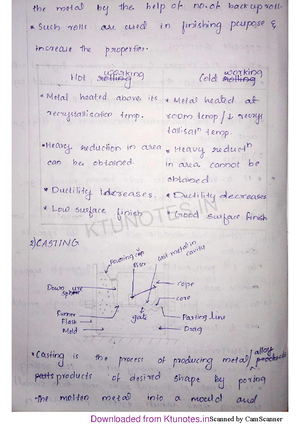 the metal by the help of no. of backup roll
• Such rolls are used in finishing purpose &
increase the properties.
Hot rolling working
Cold rolling working
• Metal heated above its
recrystallisation temp.
• Metal heated at
room temp / ↓ recrys
tallisaⁿ temp.
• Heavy reduction in area
can be obtained.
• Heavy reductⁿ
in area cannot be
obtained.
• Ductility increases.
• Ductility decreases
• Low surface finish
• Good surface finish
KTUNOTES.IN
2) CASTING
Pouring cup
Riser
metal in
cavity
Down
sprue
cope
core
Runner
gate
Parting line
Flask
Drag
Mold
• Casting is the process of producing metal / alloy
parts products of desired shape by poring
the molten metal into a mould and
Downloaded from Ktunotes.in
Scanned by CamScanner